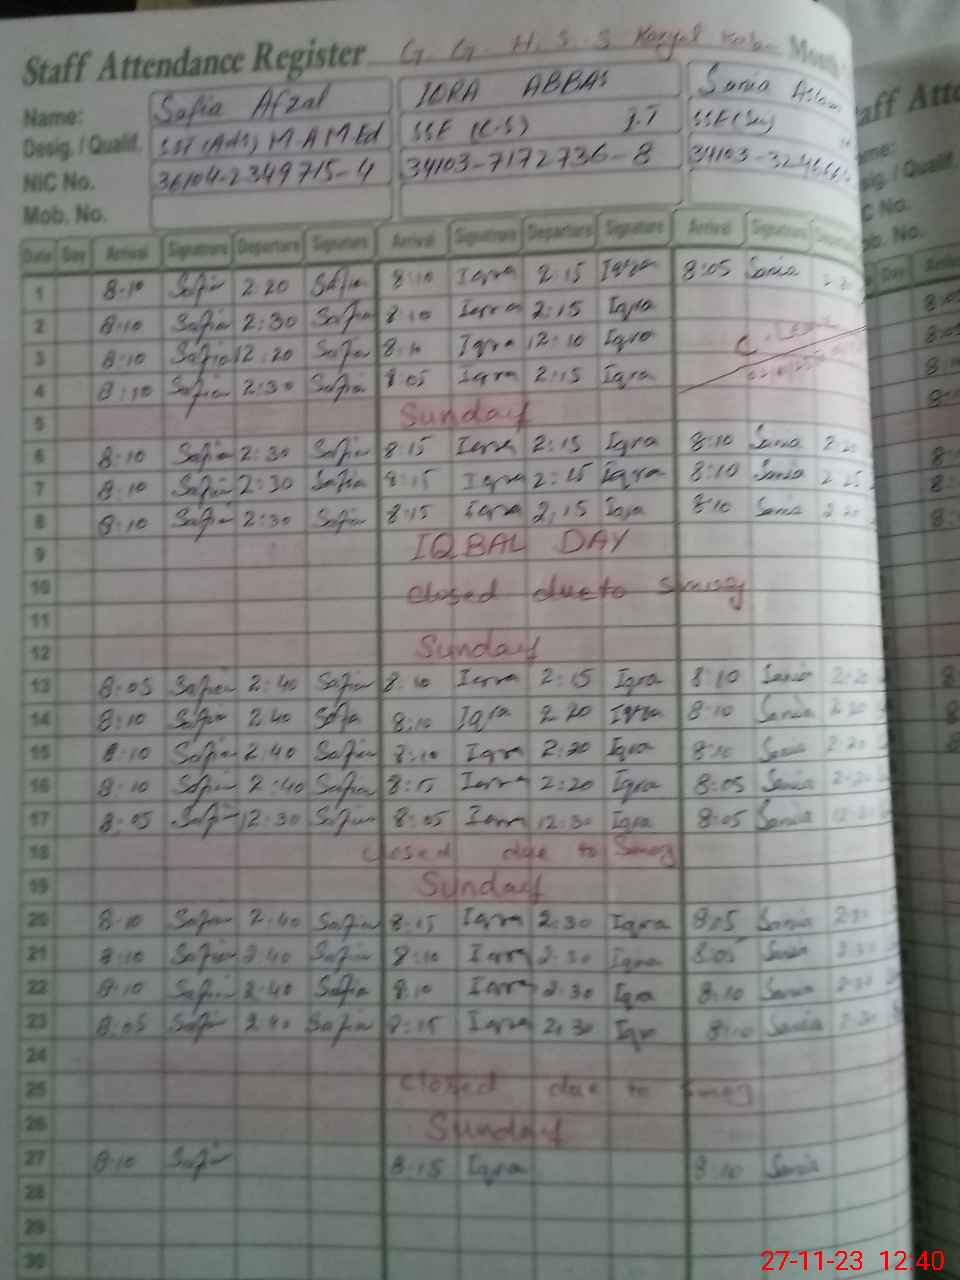 Staff Attendance Register G. G. H. S. S Month
Name: Safia Afzal IQRA ABBAS Sania Aslam
Desig. / Qualif. SST (Arts) M A M Ed SSE (C.S) I.T SSE (Sci)
NIC No. 36104-2349715-4 34103-7172736-8 34103-
Mob. No.
Date Day Arrival Signature Departure Signature Arrival Signature Departure Signature Arrival Signature Departure
1 8.10 Safia 2 20 Safia 8:10 Iqra 2:15 Iqra 8:05 Sania
2 8:10 Safia 2:30 Safia 8:10 Iqra 2:15 Iqra
3 8:10 Safia 12:20 Safia 8:10 Iqra 12:10 Iqra C. Leave
4 8:10 Safia 2:30 Safia 8:05 Iqra 2:15 Iqra
5 Sunday
6 8:10 Safia 2:30 Safia 8:15 Iqra 2:15 Iqra 8:10 Sania 2:20
7 8:10 Safia 2:30 Safia 8:15 Iqra 2:15 Iqra 8:10 Sania 2:25
8 8:10 Safia 2:30 Safia 8:15 Iqra 2:15 Iqra 8:10 Sania 2:20
9 IQBAL DAY
10 closed due to Smog
11
12 Sunday
13 8:05 Safia 2:40 Safia 8:10 Iqra 2:15 Iqra 8:10 Sania 2:20
14 8:10 Safia 2:40 Safia 8:10 Iqra 2:20 Iqra 8:10 Sania 2:20
15 8:10 Safia 2:40 Safia 8:10 Iqra 2:20 Iqra 8:10 Sania 2:20
16 8:10 Safia 2:40 Safia 8:15 Iqra 2:20 Iqra 8:05 Sania 2:20
17 8:05 Safia 12:30 Safia 8:05 Iqra 12:30 Iqra 8:05 Sania
18 closed due to Smog
19 Sunday
20 8:10 Safia 2:40 Safia 8:15 Iqra 2:30 Iqra 8:05 Sania
21 8:10 Safia 2:40 Safia 8:10 Iqra 2:30 Iqra 8:05 Sania 2:30
22 8:10 Safia 2:40 Safia 8:10 Iqra 2:30 Iqra 8:10 Sania 2:30
23 8:05 Safia 2:40 Safia 8:15 Iqra 2:30 Iqra 8:10 Sania 2:30
24
25 closed due to Smog
26 Sunday
27 8:10 Safia 8:15 Iqra 8:10 Sania
28
29
30
27-11-23 12:40